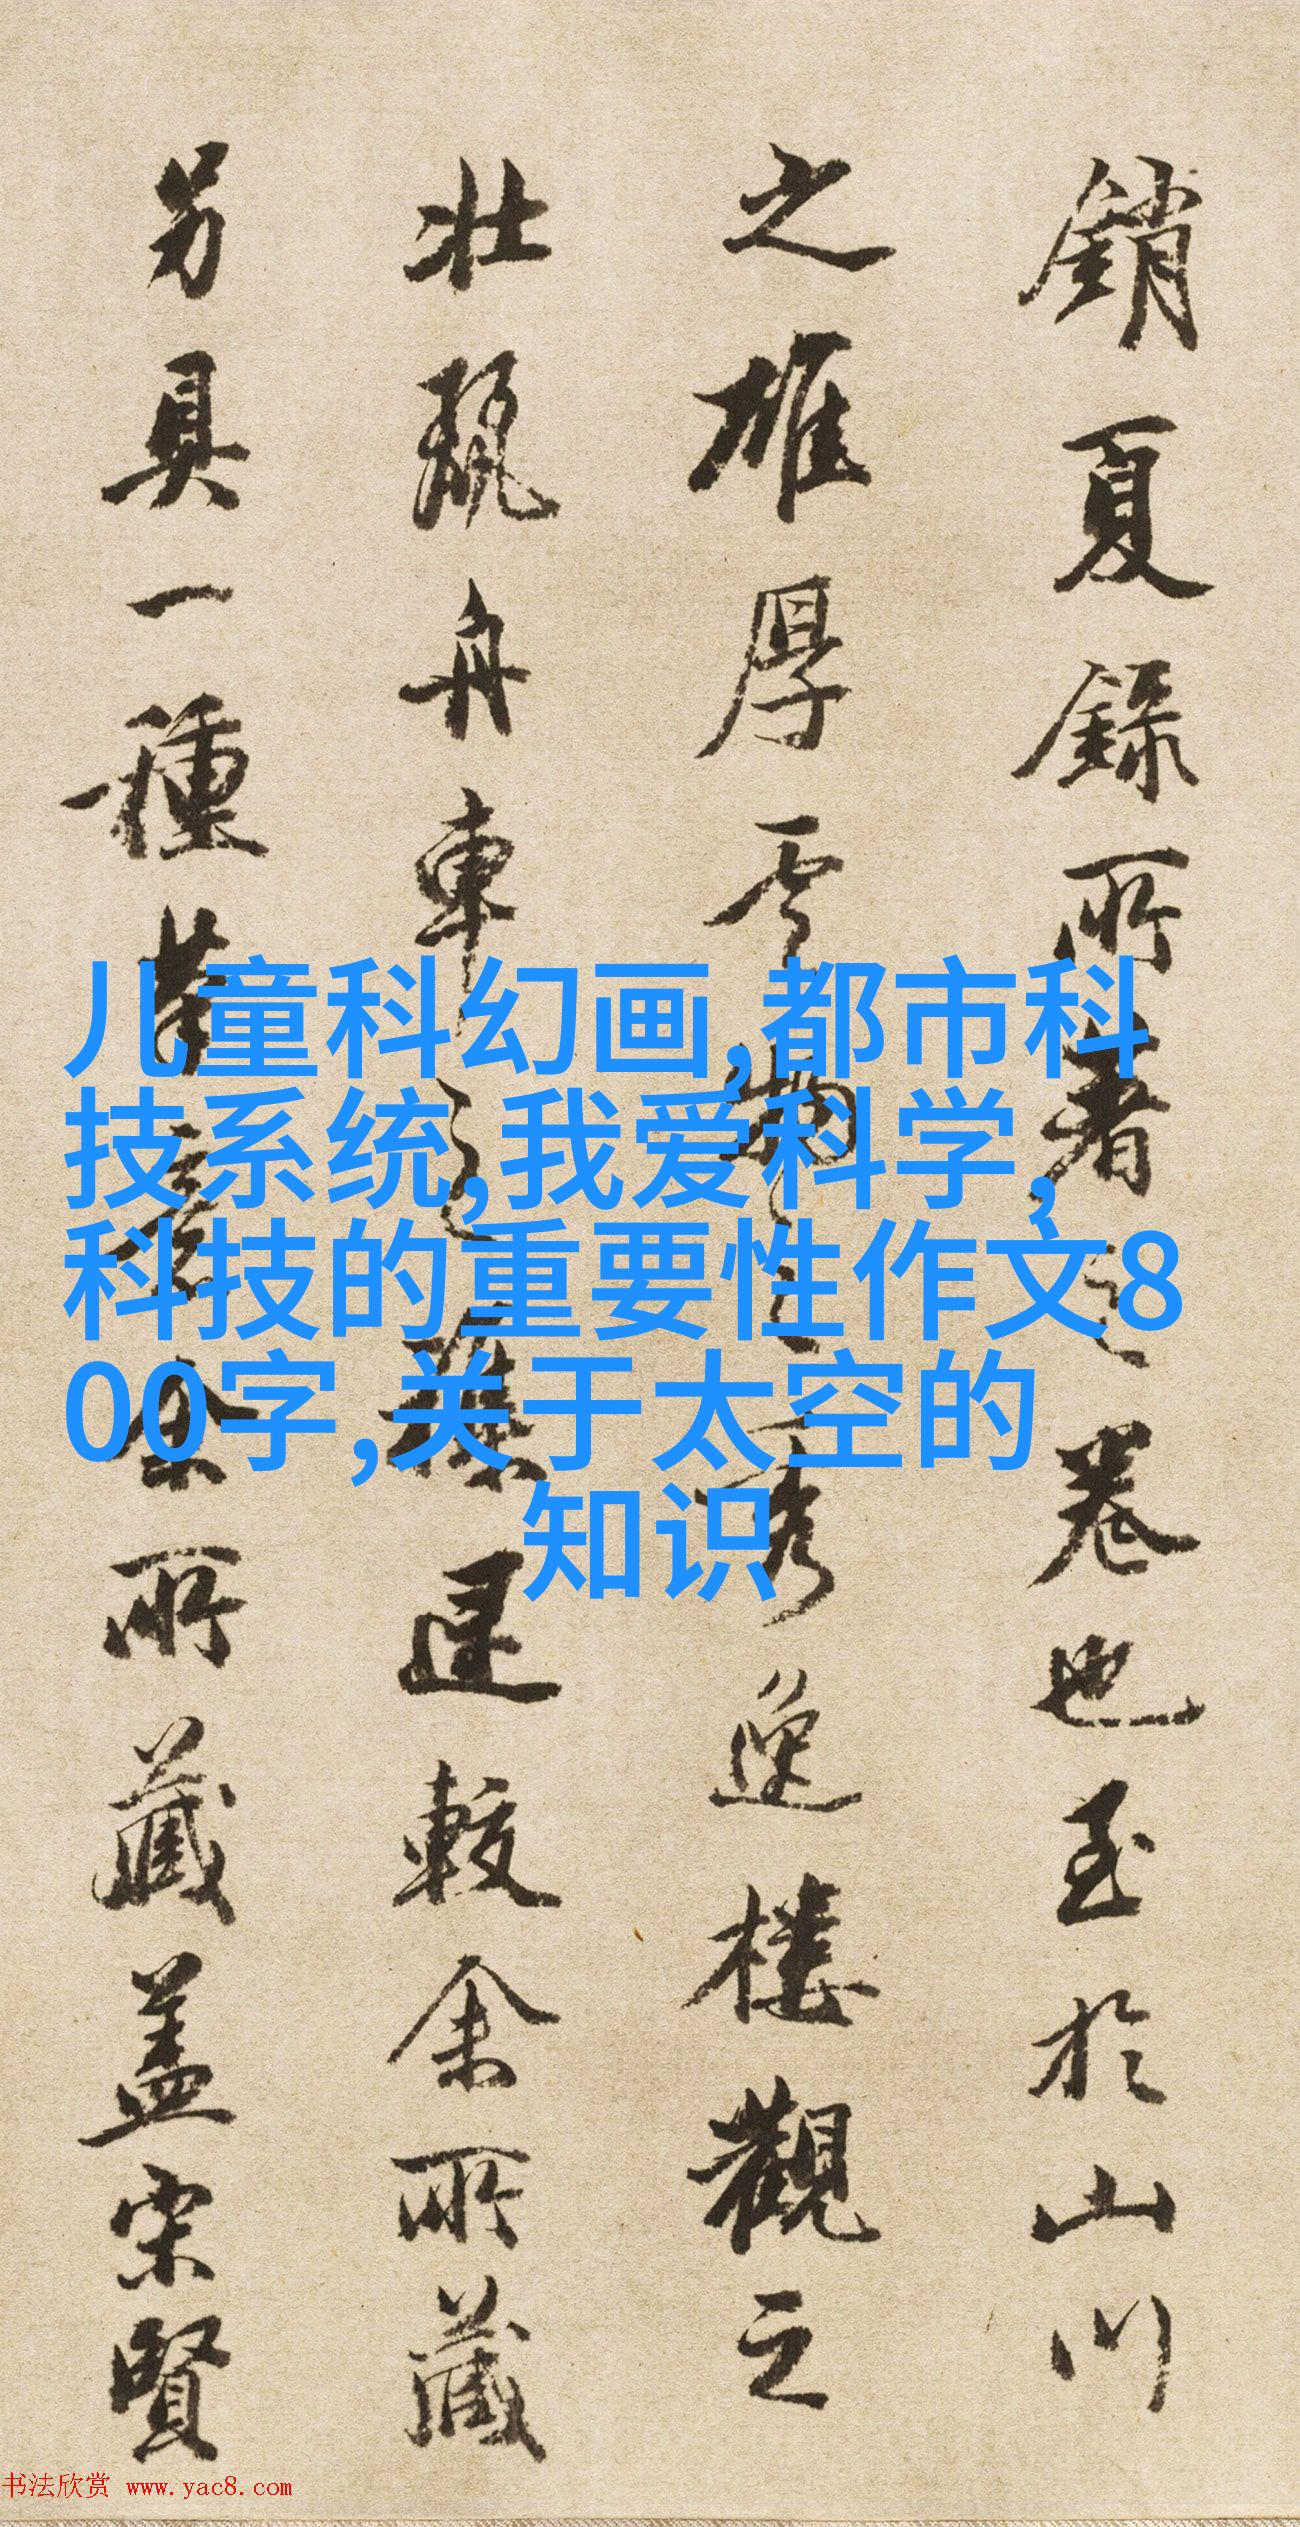 銷夏録所著之卷也至於山川
之雄厚雲物之秀逸樓觀之
壯麗舟車之 遲較余所藏
另具一種 余所藏蓋宋賢
儿童科幻画,都市科
技系统,我爱科学,
科技的重要性作文8
00字,关于太空的
知识
书法欣赏 www.yac8.com